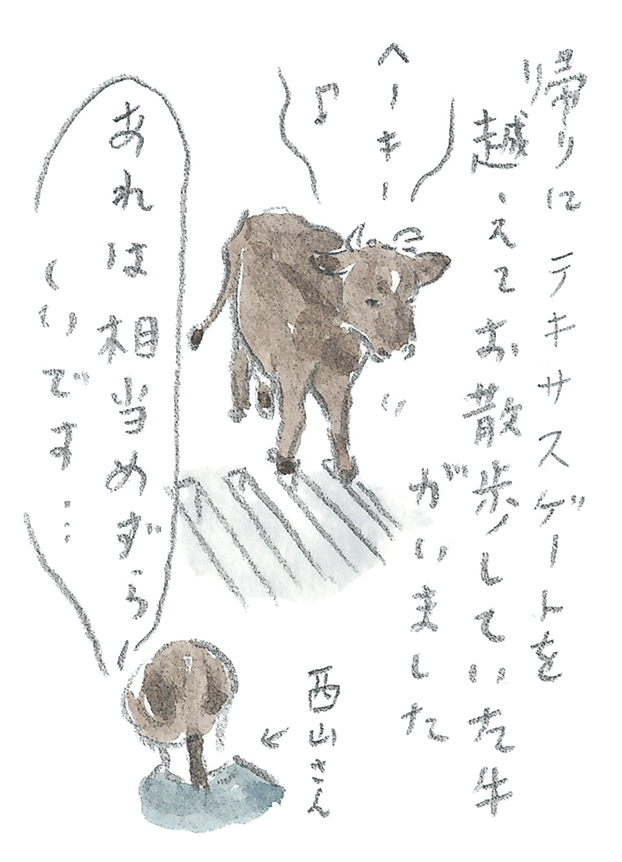 帰りに テキサスゲートを
越えてお散歩していた牛
がいました
ヘーキー
♪
西山さん
←
あれは相当めずらし
いです…